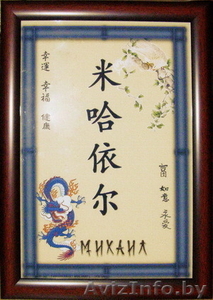 米哈依尔
幸運 幸福 健康
如意
МИХАИЛ
AvizInfo.by